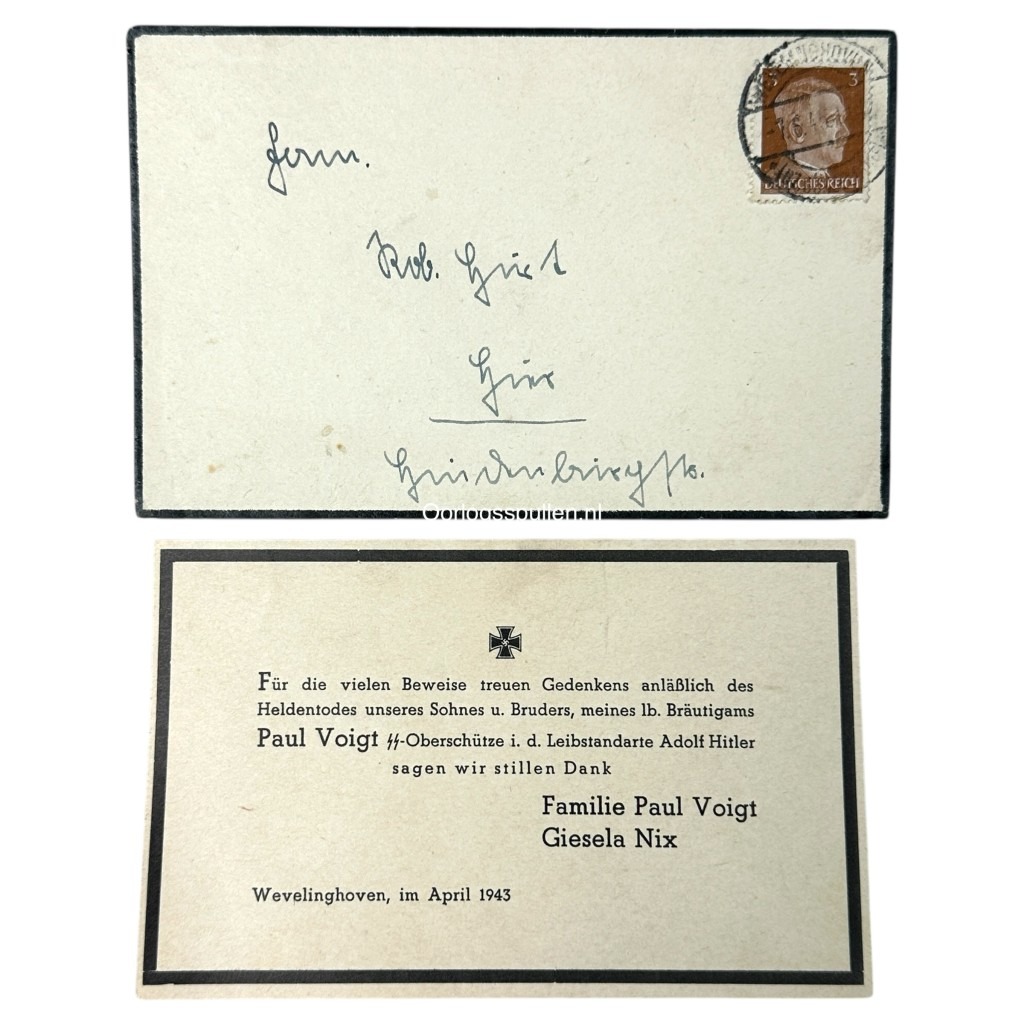 3 3
DEUTSCHES REICH
Rob.
Hier
Hindenburgstr.
Oorlogsspullen.nl
Für die vielen Beweise treuen Gedenkens anläßlich des
Heldentodes unseres Sohnes u. Bruders, meines lb. Bräutigams
Paul Voigt ᛋᛋ-Oberschütze i. d. Leibstandarte Adolf Hitler
sagen wir stillen Dank
Familie Paul Voigt
Giesela Nix
Wevelinghoven, im April 1943